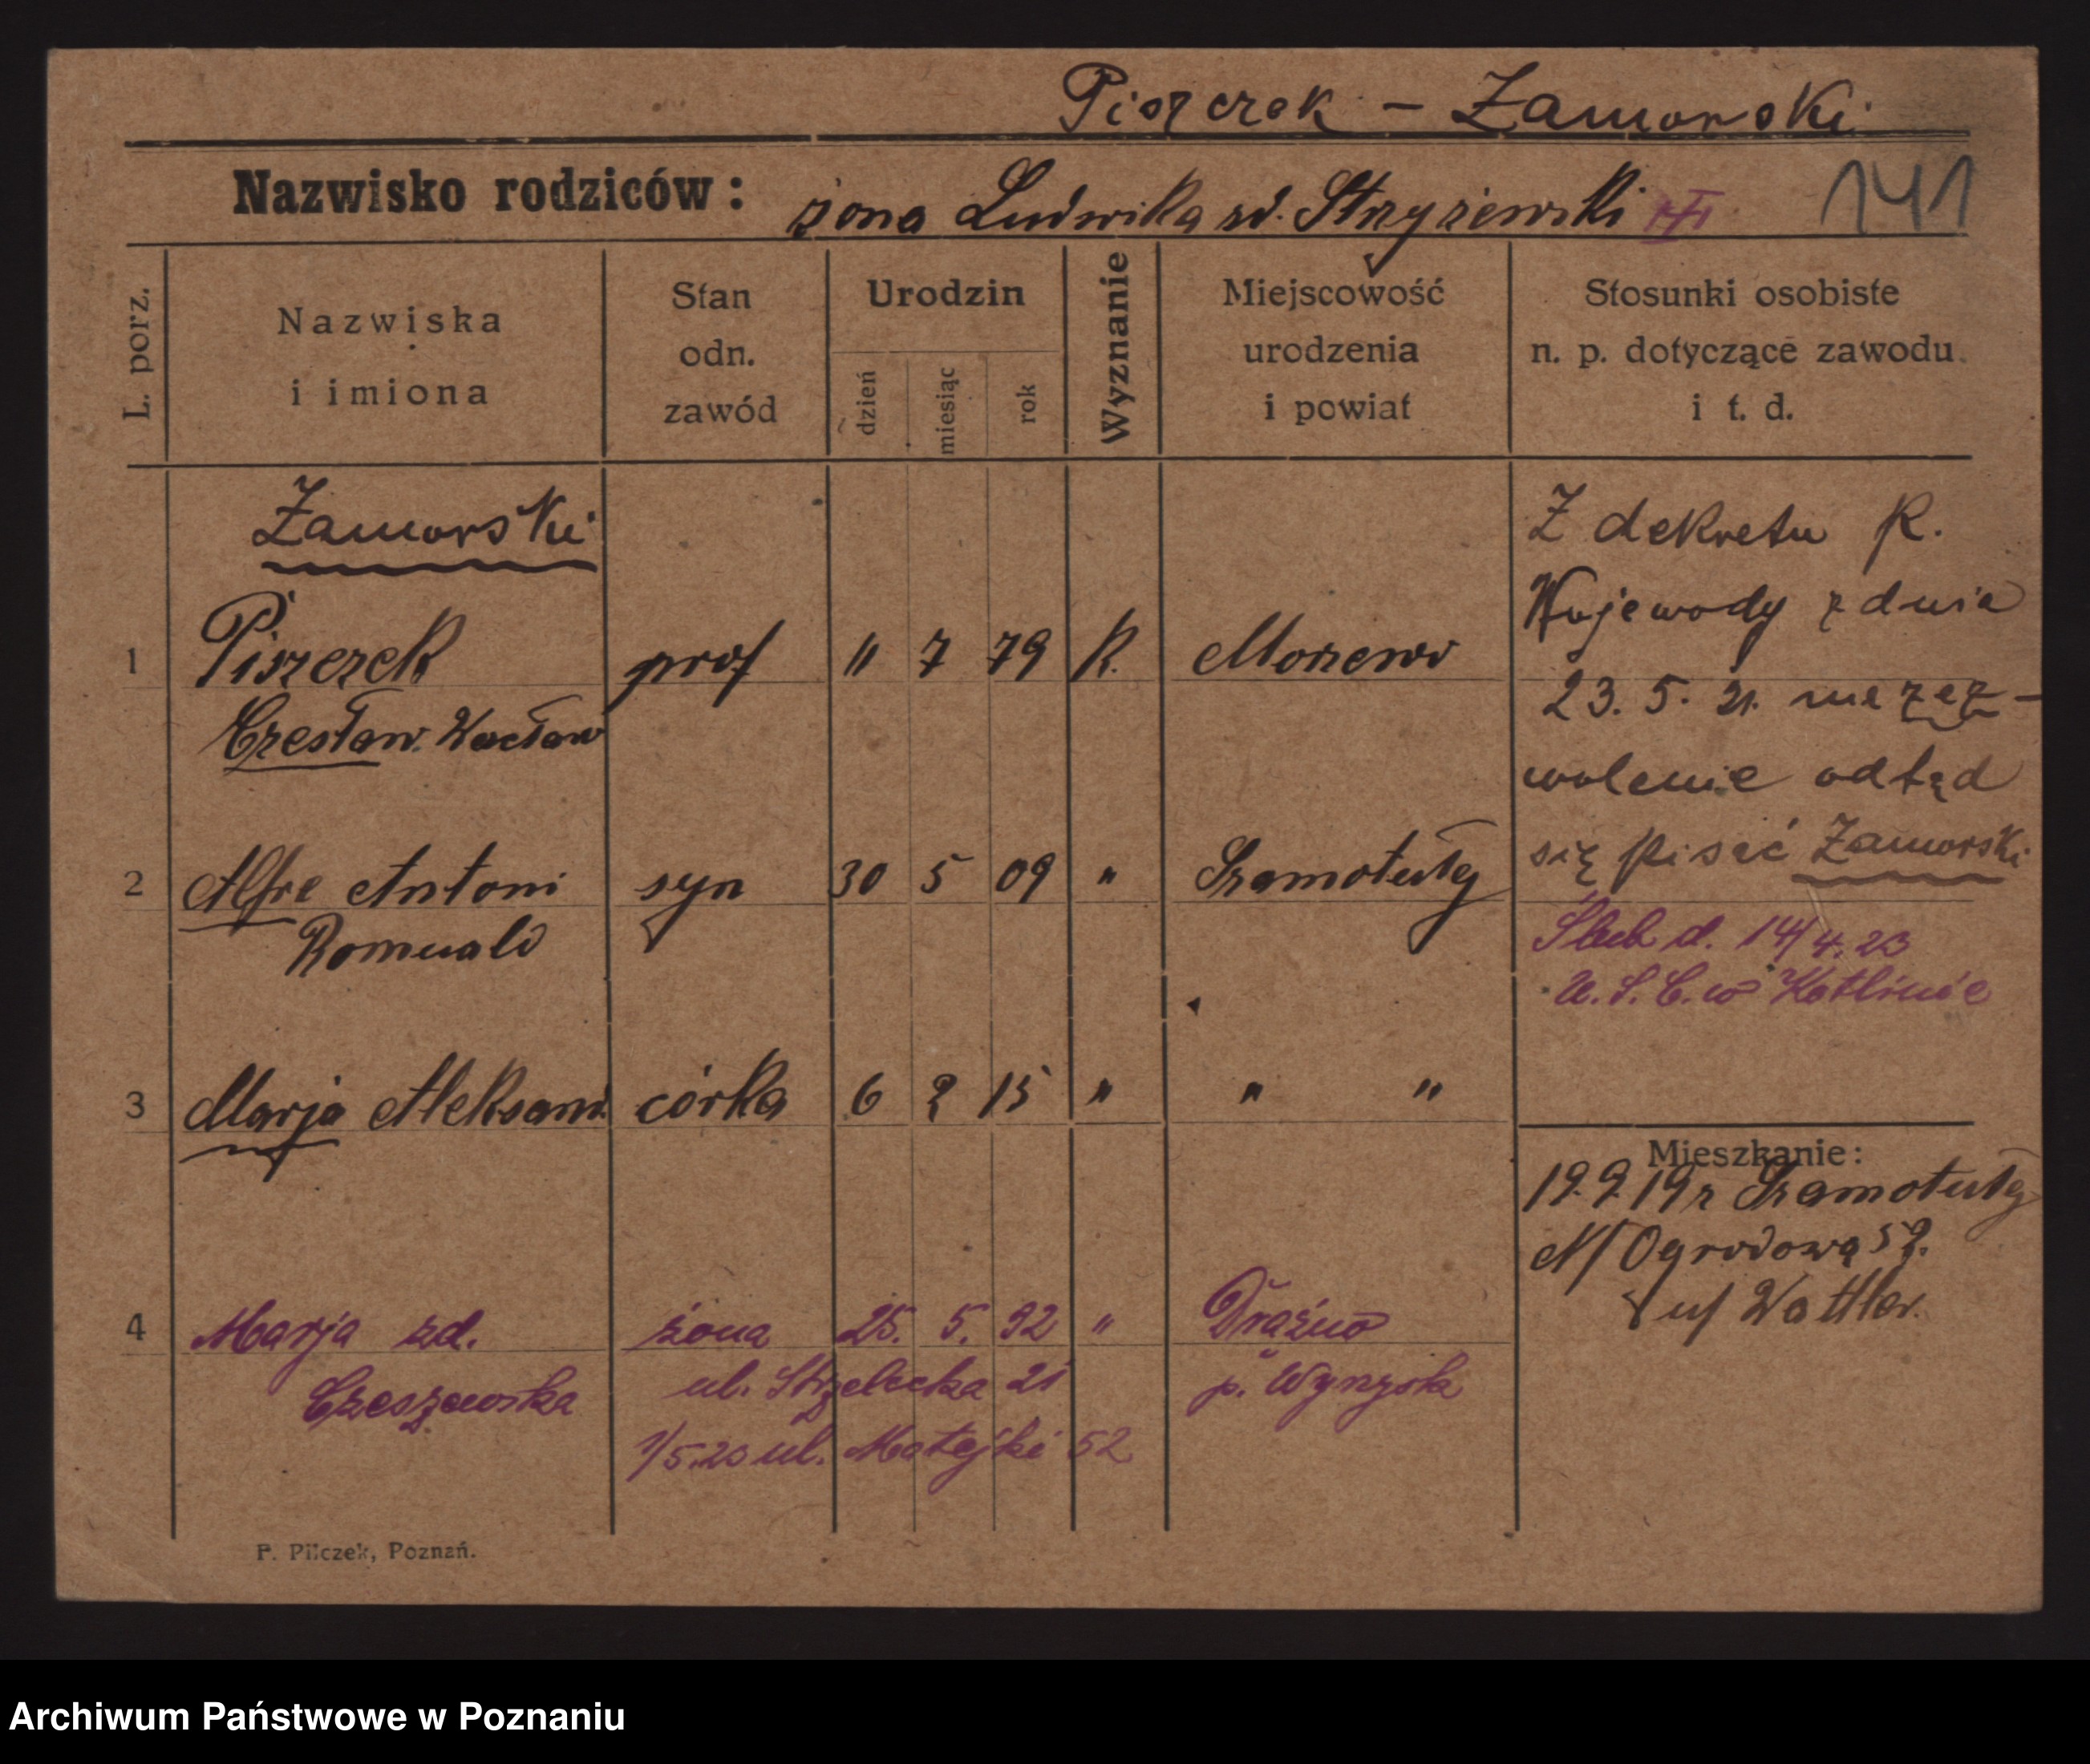 Piszczek - Zamorski
Nazwisko rodziców: żona Ludwika zd. Strzyżewski
141
L. porz.
Nazwiska
i imiona
Stan
odn.
zawód
Urodzin
dzień
miesiąc
rok
Wyznanie
Miejscowość
urodzenia
i powiat
Stosunki osobiste
n. p. dotyczące zawodu
i t. d.
Zamorski
1 Piszczek prof 11 7 79 R.
Czesław. Wacław
2 Alfre Antoni syn 30 5 09 " Szamotuły
Romuald
3 Marja Aleksand. córka 6 2 15 " " "
4 Marja zd. żona 25. 5. 92 " Drążno
Czeszewska ul. Strzelecka 21 p. Wyrzysk
1/5.20 ul. Matejki 52
Z dekretu R.
Wojewody z dnia
23. 5. 21. me zez-
wolenie odtąd
się pisać Zamorski
Ślub d. 14/4.23
U. S. C. w Kotlinie
Mieszkanie:
19.9.19r Szamotuły
N/ Ogrodową 52.
u/ Wattler.
P. Pilczek, Poznań.
Archiwum Państwowe w Poznaniu